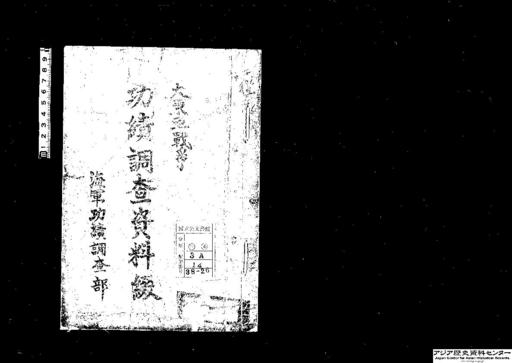 大東亜戦争
功績調査資料綴
海軍功績調査部
国立公文書館
3 A
14
38-26
アジア歴史資料センター
Japan Center for Asian Historical Records